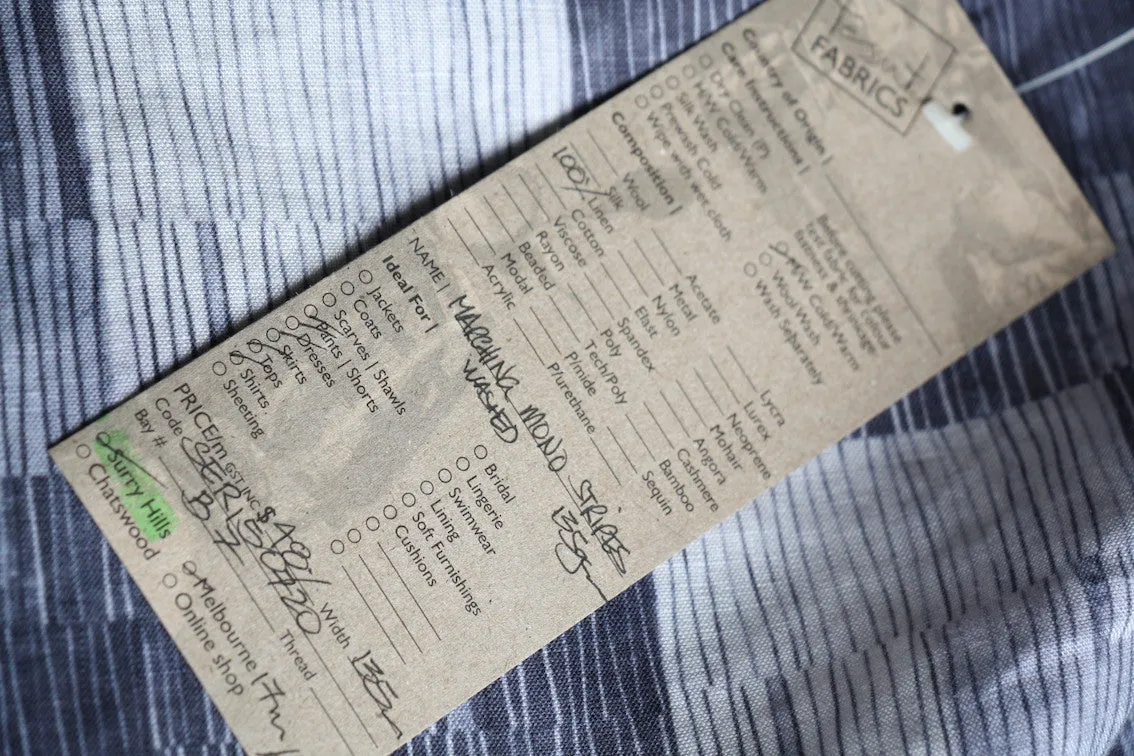 FABRICS
Country of Origin |
Care Instructions |
Dry Clean (P)
H/W Cold/Warm
Silk Wash
Prewash Cold
Wipe with wet cloth
Before cutting please
test fabric for colour
fastness & shrinkage
M/W Cold/Warm
Wool Wash
Wash Separately
Composition |
Wool
Silk
100% Linen
Cotton
Viscose
Rayon
Beaded
Modal
Acrylic
Acetate
Metal
Nylon
Elast
Spandex
Poly
Tech/Poly
P/mide
P/urethane
Lycra
Lurex
Neoprene
Mohair
Angora
Cashmere
Bamboo
Sequin
NAME | MARCHING MONO STRIPES
WASHED 135gm
Ideal For |
Jackets
Coats
Scarves | Shawls
Pants | Shorts
Dresses
Skirts
Tops
Shirts
Sheeting
Bridal
Lingerie
Swimwear
Lining
Soft Furnishings
Cushions
PRICE/m GST INC. $48/ Width 135
Code
Bay # Thread
Surry Hills
Chatswood
Melbourne 17m
Online shop